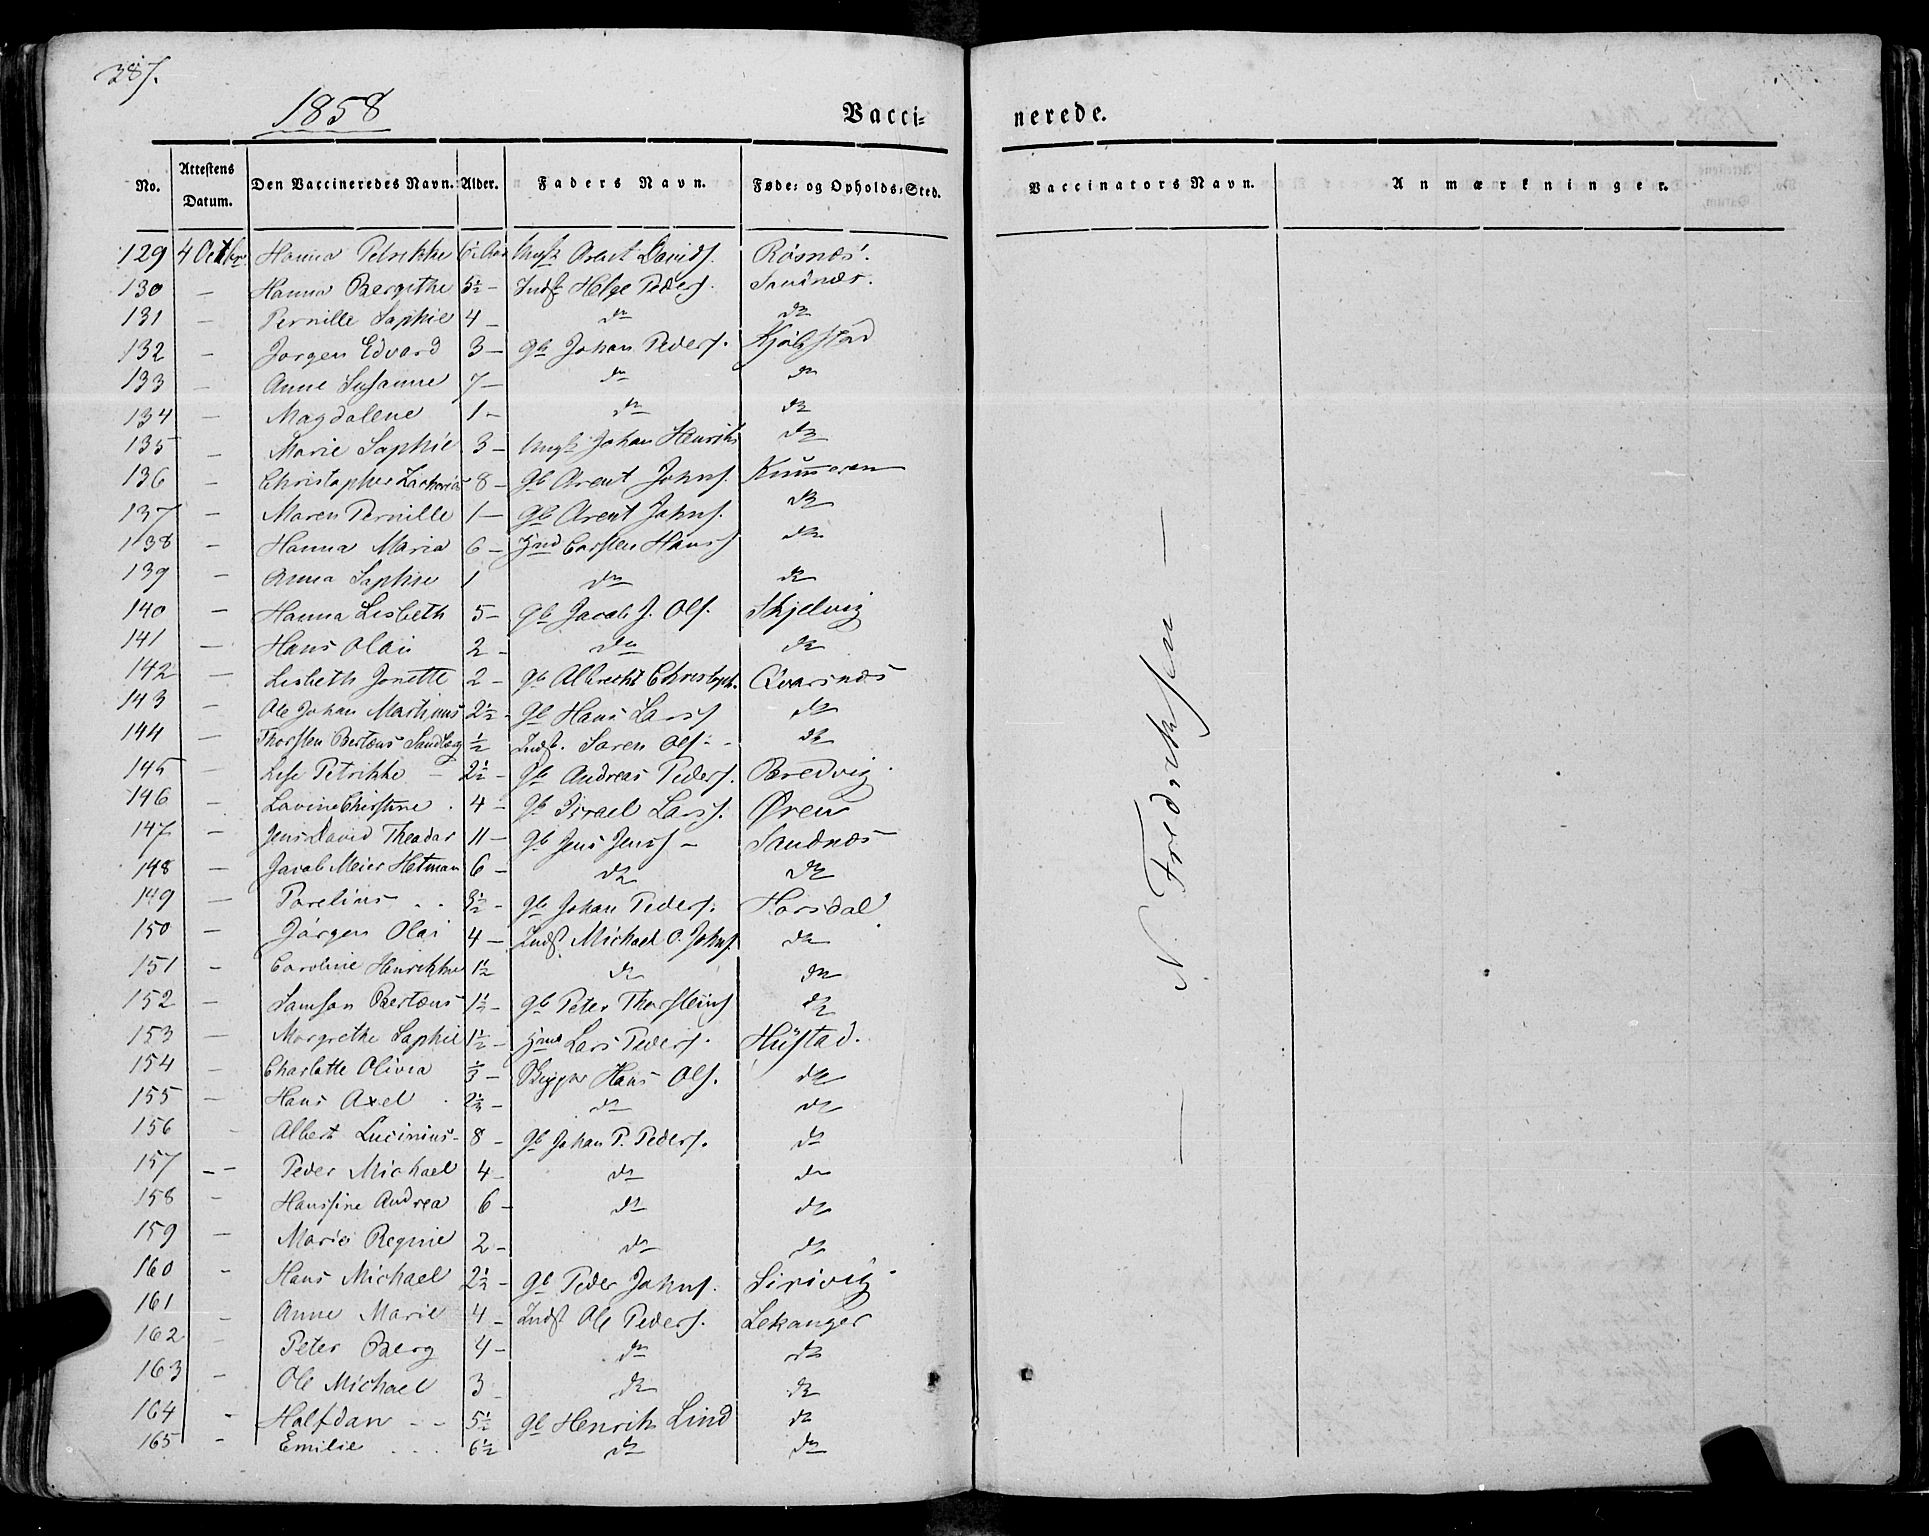 387.
1858
Vacci-
nerede.
No. Attestens Datum. Den Vaccineredes Navn. Alder. Faders Navn. Føde- og Opholds-Sted. Vaccinators Navn. Anmærkninger.
129 4 Octbr Hanna Petrikke 6 Aar Arent Davids. Røsnæs.
130 — Hanna Bergithe 5½ — Indst Helge Peders. Sandnæs.
131 — Pernille Sophie 4 — do do
132 — Jørgen Edvard 3 — Gb Johan Peders. Kjølstad
133 — Anne Susanne 7 — do do
134 — Magdalene 1 — do do
135 — Marie Sophie 3 — Johan Henriks do
136 — Christopher Zacharias 8 — Gb Arent Johns. Kummeren
137 — Maren Pernille 1 — Gb Arent Johns. do
138 — Hanna Maria 6 — Hmd Carsten Hans do
139 — Anna Sophie 1 do do
140 — Hanna Lisbeth 5 — Gb Jacob J. Ols. Skjelvig
141 — Hans Olai 2 — do do
142 — Lisbeth Jonette 2 — Gb Albrecht Christoph. Qvarsnæs
143 — Ole Johan Martinus 2½ — Gb Hans Lars do
144 — Thorsten Bertæus Sandbeg ½ Indst. Søren Ols — do
145 — Lise Petrikke — 2½ — Gb Andreas Peders. Bredvig
146 — Lovine Christine . 4 — Gb Israel Lars. Øren
147 — Jens David Theodor 11 — Gb Jens Jens — Sandnæs
148 — Jacob Meier Hetman 6 — do do
149 — Parelius . . 3½ — Gb Johan Peders. Horsdal
150 — Jørgen Olai 4 — Indst. Michael O. Johns. do
151 — Caroline Henrikke 1½ do do
152 — Samson Bertæus 1½ — Gb Peter Thorsteins do
153 — Margrethe Sophie 1½ — Hmd Lars Peders. Hustad.
154 — Charlotte Olivia ⅓ — Skipper Hans Ols. do
155 — Hans Axel . 2½ — do do
156 — Albert Lucinius — 8 — Gb Johan P. Peders. do
157 — — Peder Michael 4 — do do
158 — Hanssine Andrea 6 — do do
159 — Marie Regine 2 — do do
160 — Hans Michael 2½ — Gb Peder Johns. Sirivig
161 — Anne Marie 4 — Indst Ole Peders. Lekanger
162 Peter Berg 4 — do do
163 — Ole Michael 3 — do do
164 — Halfdan — — 5½ Gb Henrik Lind do
165 — Emilie . . . 6½ do do
— N. Fredriksen —